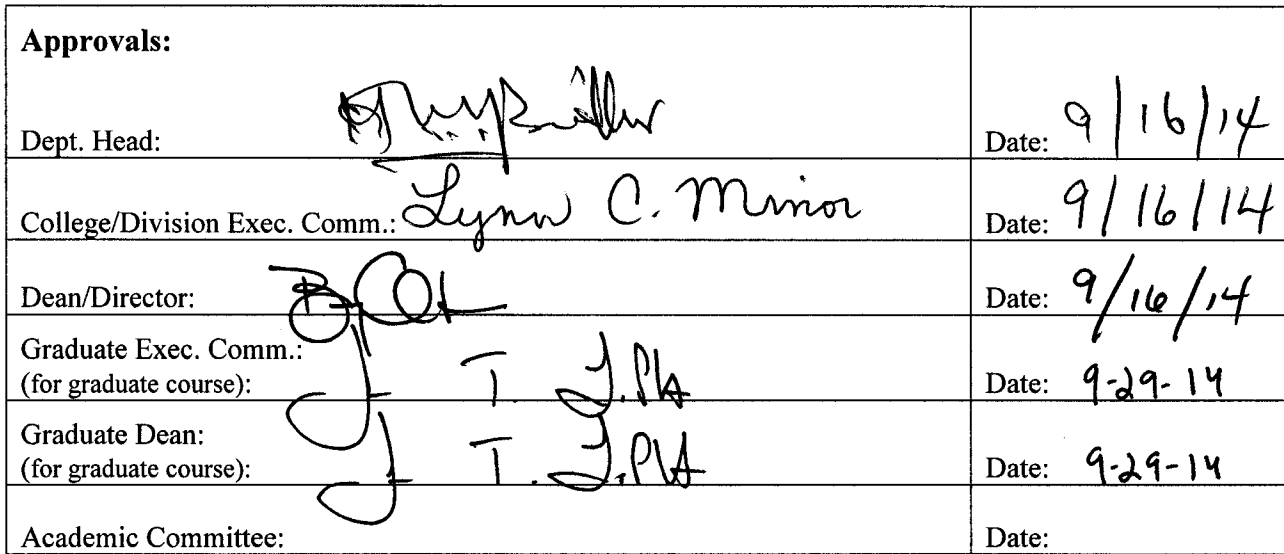 Approvals:
Dept. Head: Date: 9/16/14
College/Division Exec. Comm.: Lynn C. Minor Date: 9/16/14
Dean/Director: Date: 9/16/14
Graduate Exec. Comm.:
(for graduate course): Date: 9-29-14
Graduate Dean:
(for graduate course): Date: 9-29-14
Academic Committee: Date: